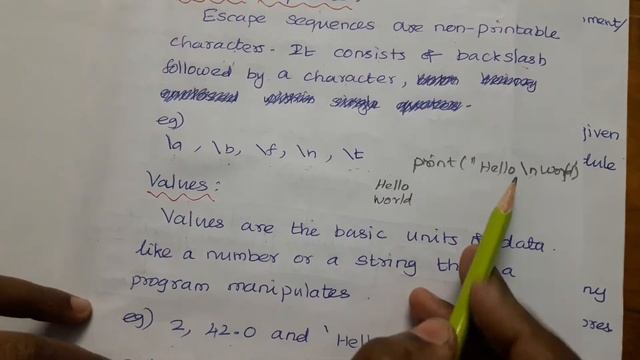 Escape sequences are non-printable
characters. It consists of backslash
followed by a character,
eg)
\a , \b, \f, \n , \t
print("Hello \n world)
Hello
world
Values:
Values are the basic units of data
like a number or a string a
program manipulates.
eg) 2, 42.0 and 'Hell
ment/
given
dule
ny
ores